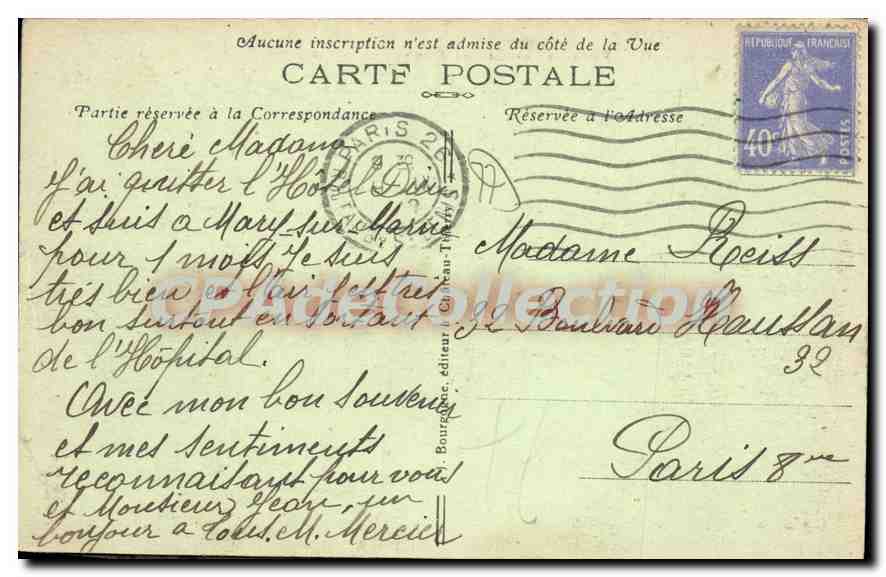 Aucune inscription n'est admise du côté de la Vue
CARTE POSTALE
Partie réservée à la Correspondance
Réservée a l'Adresse
RÉPUBLIQUE FRANÇAISE
40c
POSTES
PARIS 22
77
Cheré Madame
J'ai quitter l'Hôtel Dieu
et suis a Mary-sur-Marne
pour 1 mois Je suis
trés bien et l'air est trés
bon surtout en sortant
de l'Hôpital.
Avec mon bon souvenir
et mes sentiments
reconnaisant pour vous
et Monsieur Jean, un
bonjour a tous. M. Mercier
Madame Reiss
32 Boulvard Haussman
32
Paris 8me
Bourgogne, éditeur à Château-Thierry
CPA de Collection